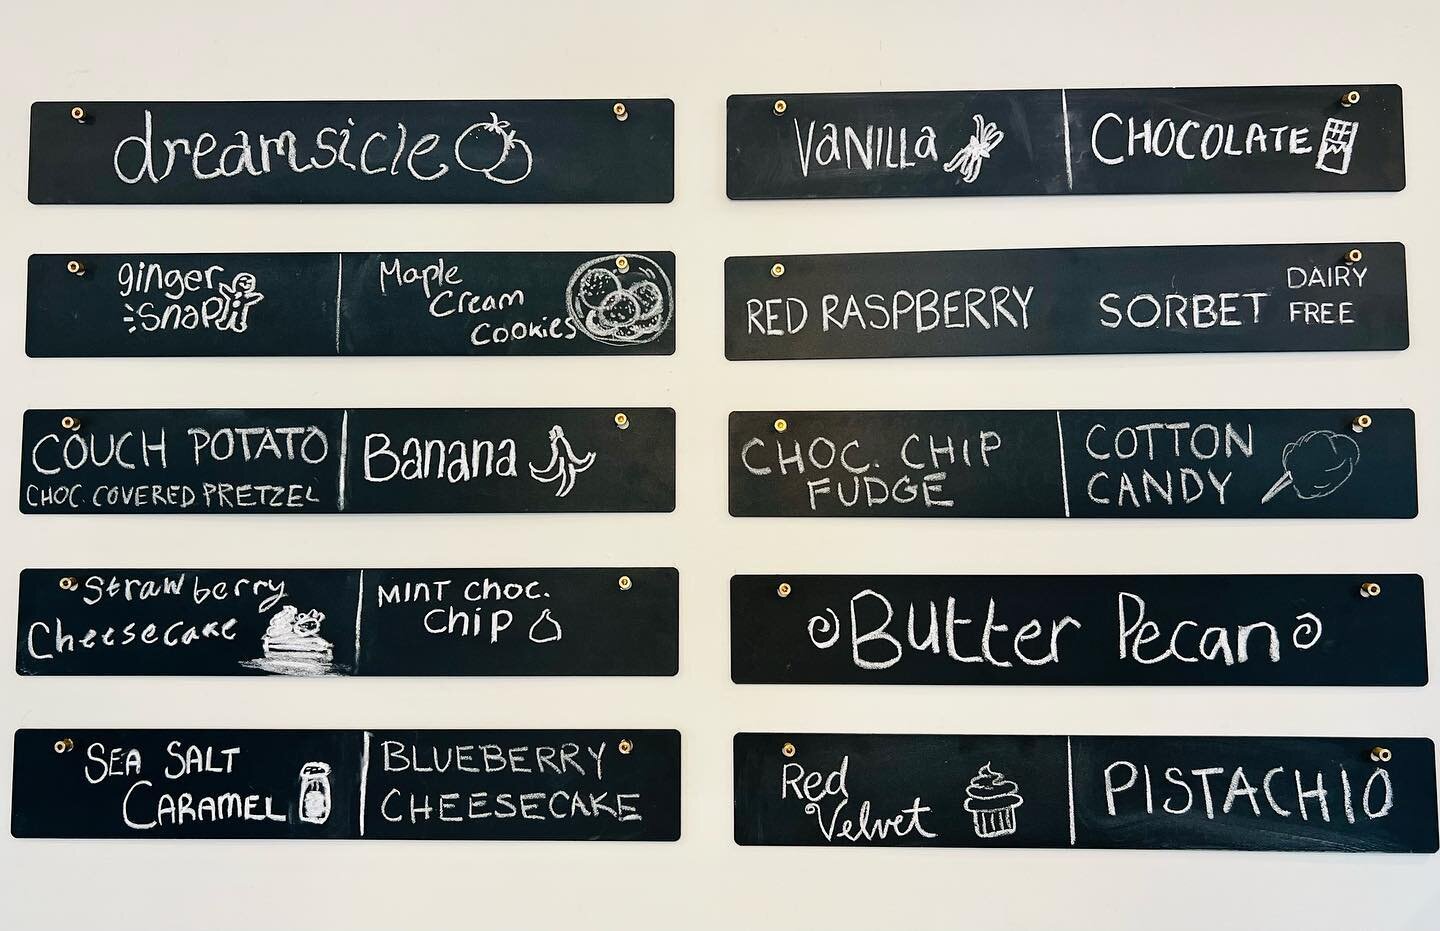 dreamsicle
ginger
snap
Maple
Cream
Cookies
COUCH POTATO
CHOC. COVERED PRETZEL
Banana
Strawberry
Cheesecake
MINT CHOC.
CHIP
SEA SALT
CARAMEL
BLUEBERRY
CHEESECAKE
VANILLA
CHOCOLATE
RED RASPBERRY SORBET DAIRY
FREE
CHOC. CHIP
FUDGE
COTTON
CANDY
Butter Pecan
Red
Velvet
PISTACHIO